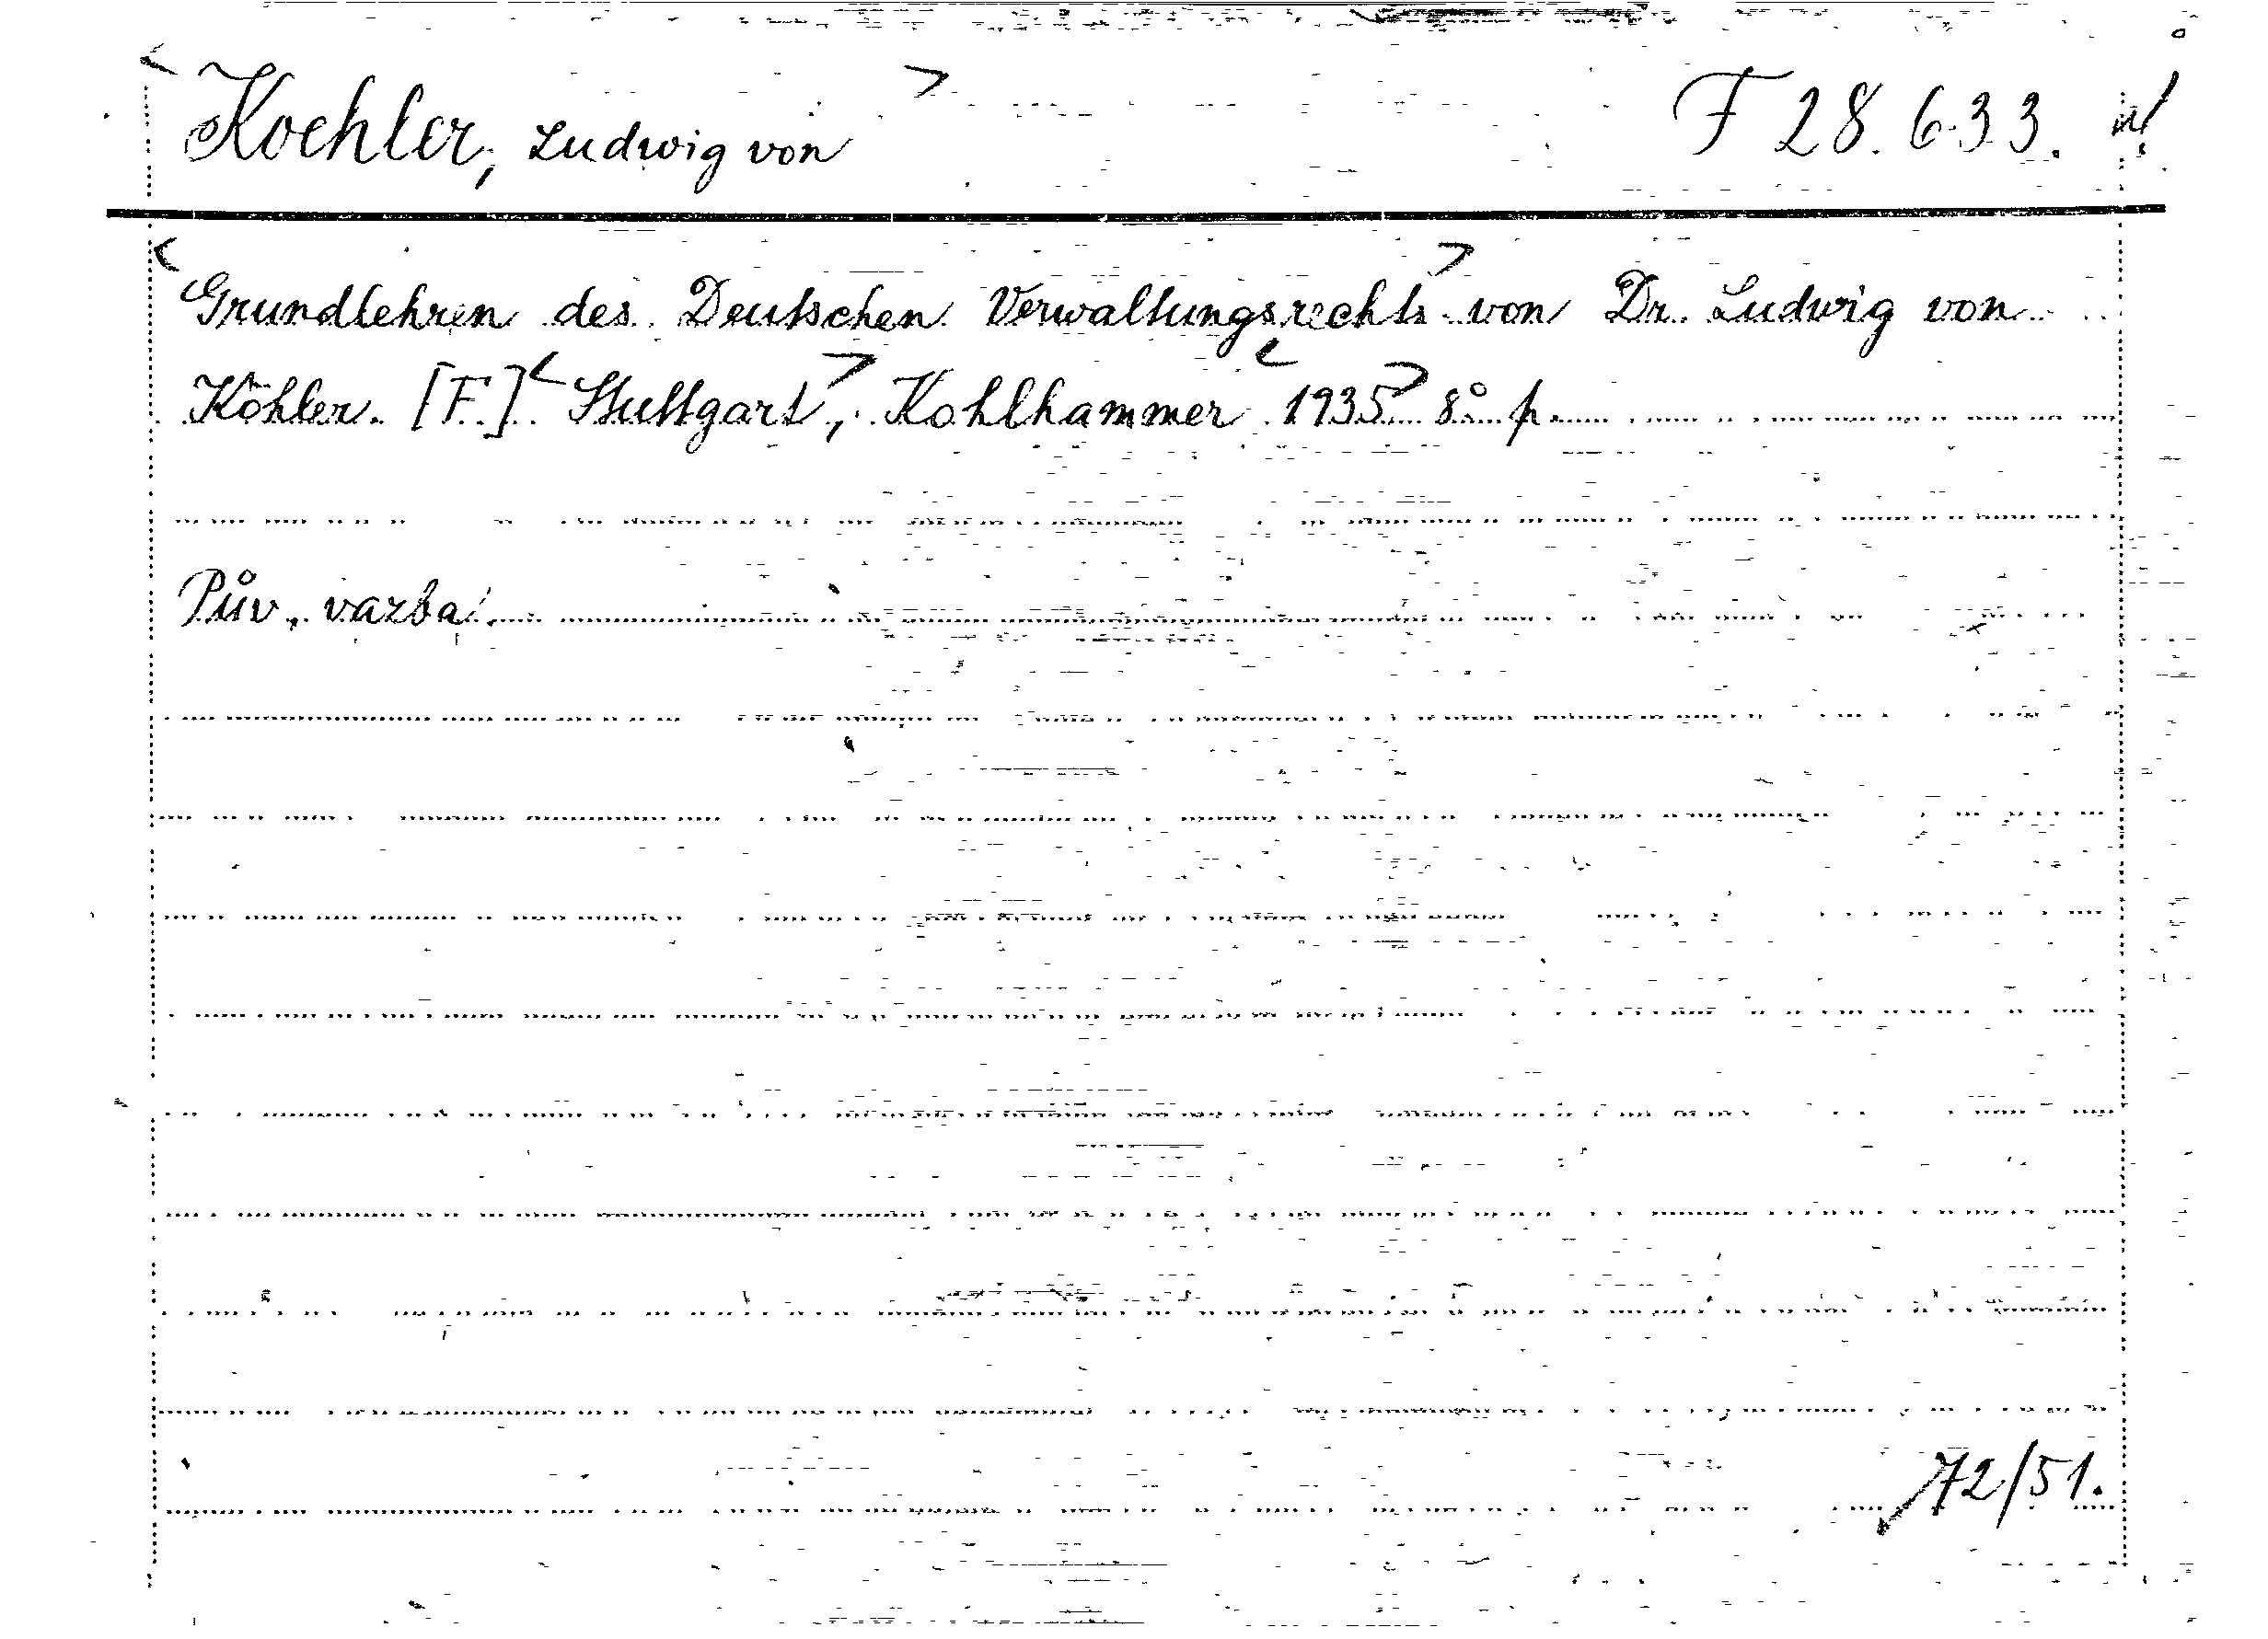 <Koehler, Ludwig von> F 28.633.
<Grundlehren des Deutschen Verwaltungsrechts> von Dr. Ludwig von
Köhler. [F.] <Stuttgart>, Kohlhammer <1935> 8° p.
Pův. vazba.
72/51.